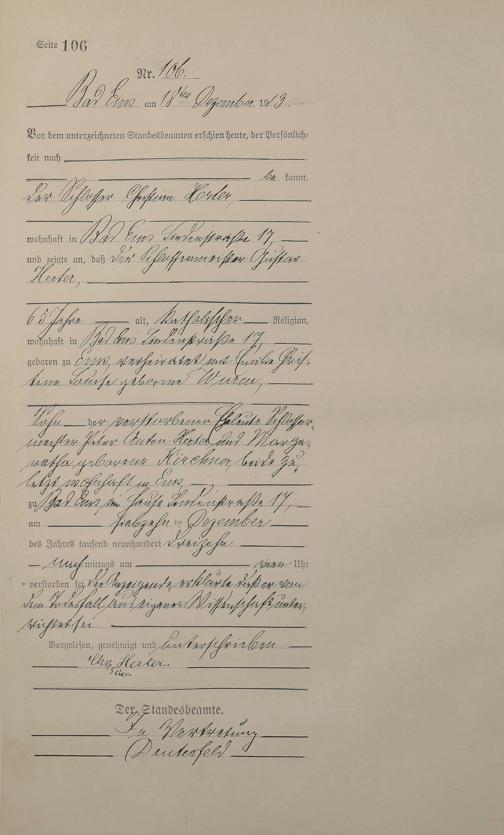 Seite 106
Nr. 106.
Bad Ems am 18ten Dezember 1913.
Vor dem unterzeichneten Standesbeamten erschien heute, der Persönlich-
keit nach
be kannt,
der Schlosser Christian Herter,
wohnhaft in Bad Ems Lindenstraße 17,
und zeigte an, daß der Schlossermeister Gustav
Herter,
65 Jahre alt, katholischer Religion,
wohnhaft in Bad Ems Lindenstraße 17,
geboren zu Ems, verheiratet mit Emilie Chris-
tine Louise geborene Wurm,
Sohn der verstorbenen Eheleute Schlosser-
meister Peter Anton Herter und Marga-
retha geborene Kirchner, beide zu-
letzt wohnhaft in Ems,
zu Bad Ems, im Hause Lindenstraße 17,
am siebzehn ten Dezember
des Jahres tausend neunhundert dreizehn
nach mittags um vier Uhr
verstorben sei. Der Anzeigende erklärte daß er von
dem Todesfall aus eigener Wissenschaft unter-
richtet sei.
Vorgelesen, genehmigt und unterschrieben
Chr. Herter.
Der Standesbeamte.
In Vertretung